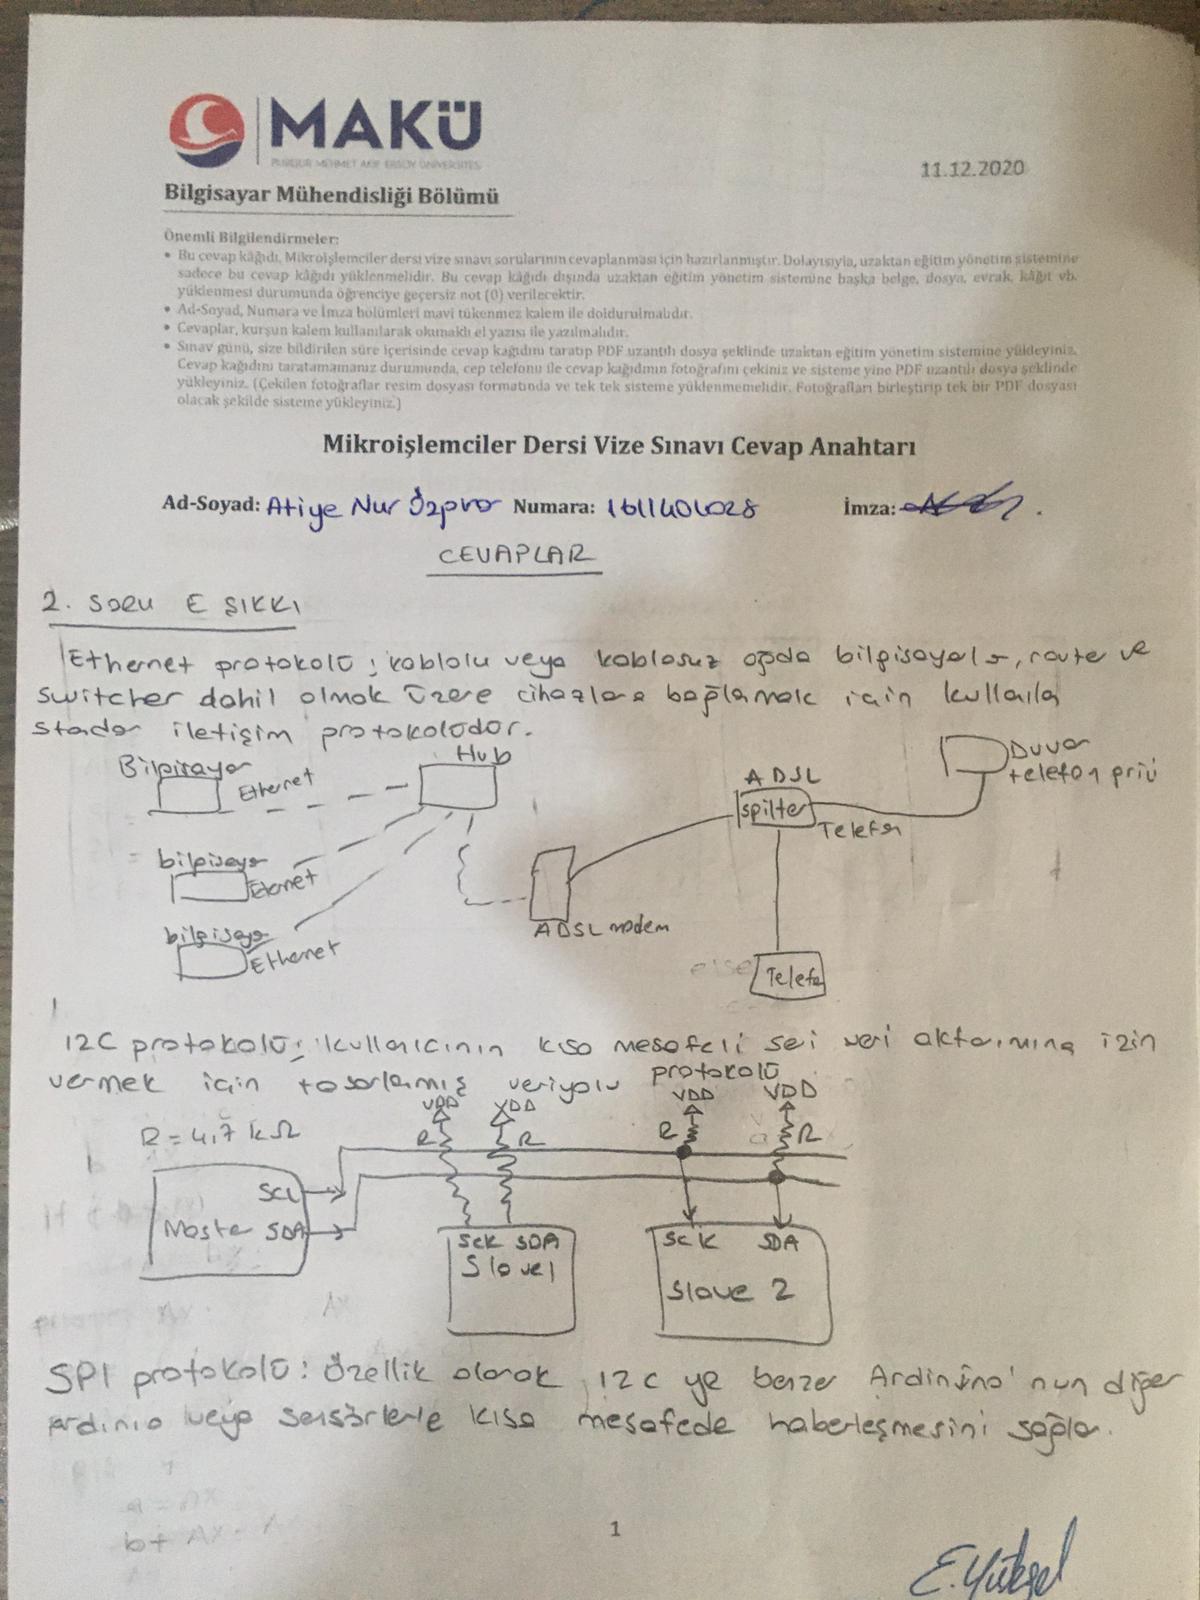 MAKÜ
BURDUR MEHMET AKİF ERSOY ÜNİVERSİTESİ
11.12.2020
Bilgisayar Mühendisliği Bölümü
Önemli Bilgilendirmeler:
• Bu cevap kâğıdı, Mikroişlemciler dersi vize sınavı sorularının cevaplanması için hazırlanmıştır. Dolayısıyla, uzaktan eğitim yönetim sistemine
sadece bu cevap kâğıdı yüklenmelidir. Bu cevap kâğıdı dışında uzaktan eğitim yönetim sistemine başka belge, dosya, evrak, kâğıt vb.
yüklenmesi durumunda öğrenciye geçersiz not (0) verilecektir.
• Ad-Soyad, Numara ve İmza bölümleri mavi tükenmez kalem ile doldurulmalıdır.
• Cevaplar, kurşun kalem kullanılarak okunaklı el yazısı ile yazılmalıdır.
• Sınav günü, size bildirilen süre içerisinde cevap kağıdını taratıp PDF uzantılı dosya şeklinde uzaktan eğitim yönetim sistemine yükleyiniz.
Cevap kağıdını taratamamanız durumunda, cep telefonu ile cevap kağıdının fotoğrafını çekiniz ve sisteme yine PDF uzantılı dosya şeklinde
yükleyiniz. (Çekilen fotoğraflar resim dosyası formatında ve tek tek sisteme yüklenmemelidir. Fotoğrafları birleştirip tek bir PDF dosyası
olacak şekilde sisteme yükleyiniz.)
Mikroişlemciler Dersi Vize Sınavı Cevap Anahtarı
Ad-Soyad: Atiye Nur Numara: 1611404028 İmza:
CEVAPLAR
2. SORU E ŞIKKI
Ethernet protokolü; kablolu veya kablosuz ağda bilgisayalr, router ve
switcher dahil olmak üzere cihazlara bağlamak için kullanıla
standar iletişim protokolüdür.
Bilgisayar Ethernet Hub
ADSL spilter Telefon
Duvar telefon prizi
bilgisayar Ethernet
bilgisayar Ethernet
ADSL modem
Telefon
I2C protokolü; kullanıcının kısa mesafeli seri veri aktarımına izin
vermek için tasarlanmış veriyolu protokolü
VDD VDD VDD VDD
R = 4,7 kΩ R R R R
SCL
Master SDA
Sck SDA
Slave1
SCK SDA
Slave 2
SPI protokolü: Özellik olarak I2C ye benzer Ardinino'nun diğer
ardinio veya sensörlerle kısa mesafede haberleşmesini sağlar.
1
E.Yüksel